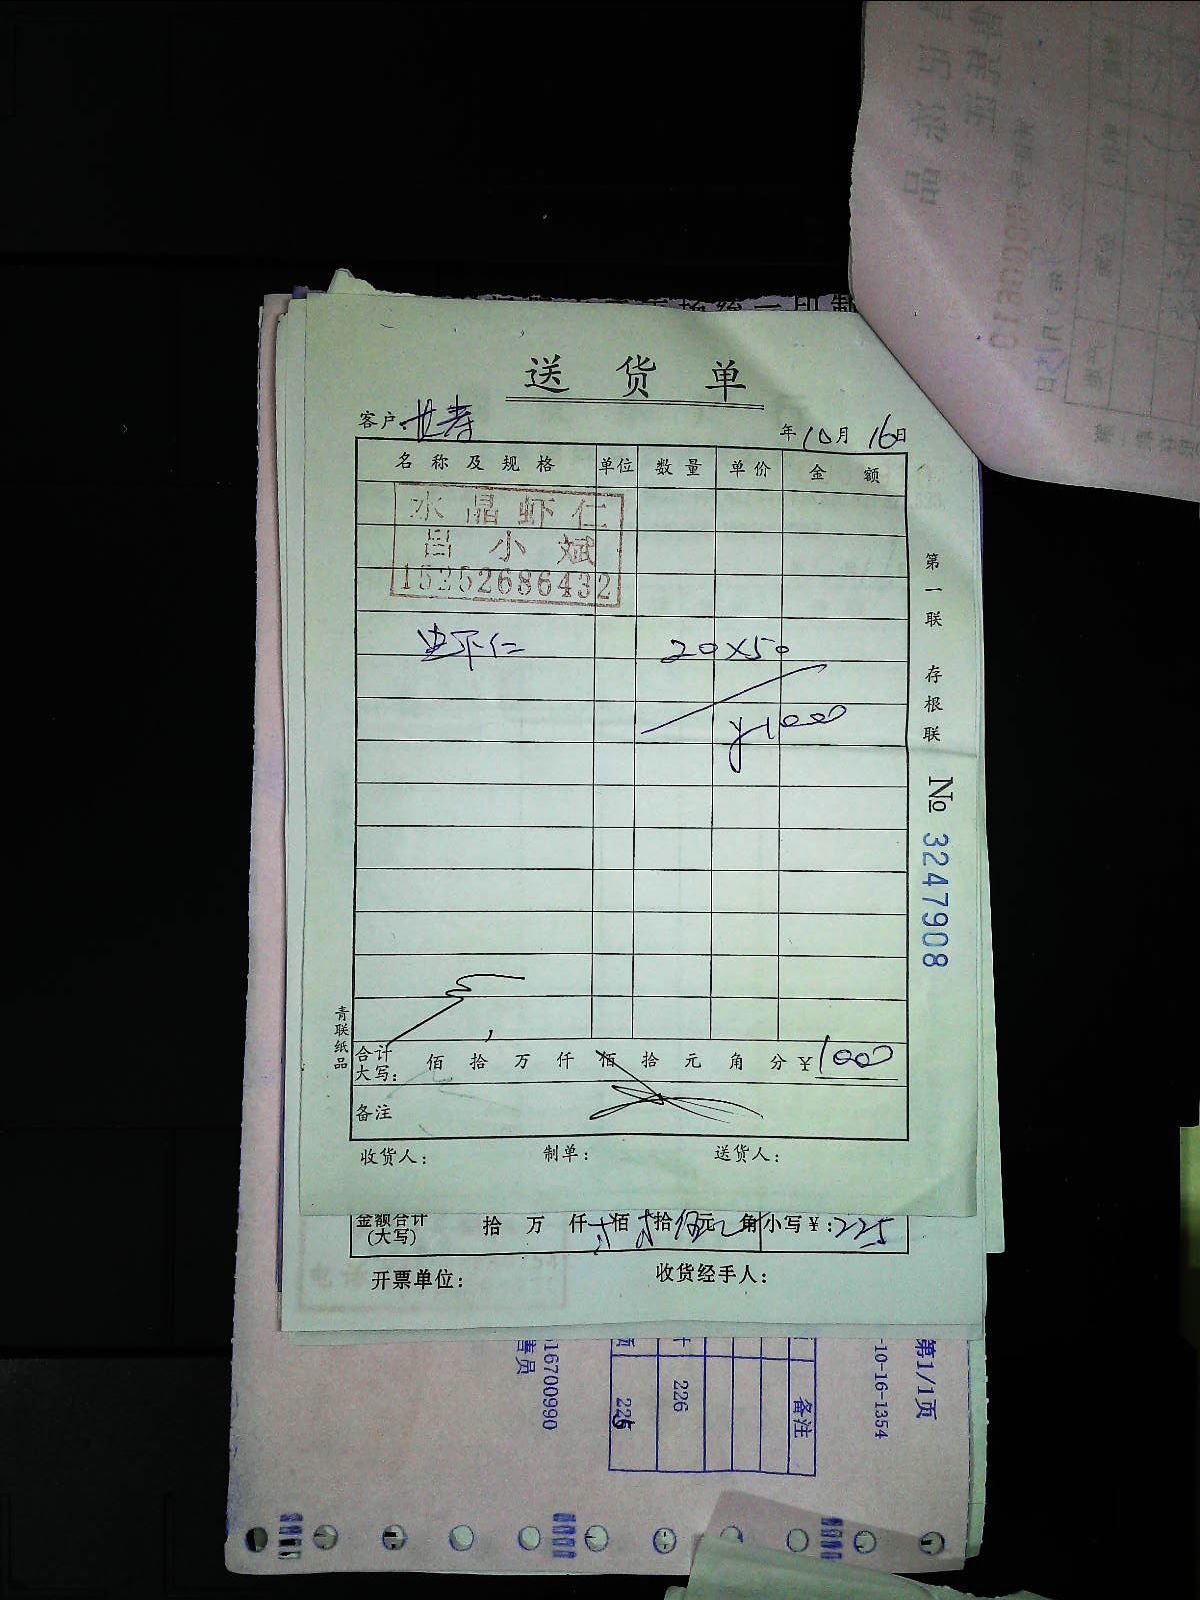 送货单
客户: 世寿
年10月16日
名称及规格 单位 数量 单价 金额
水晶虾仁
吕小斌
15252686432
虾仁 20×50
¥1000
合计大写: 佰 拾 万 仟 佰 拾 元 角 分 ¥1000
备注
收货人: 制单: 送货人:
第一联 存根联
№ 3247908
青联纸品
金额合计(大写) 拾 万 仟 佰 拾 元 角 小写¥: 225
开票单位: 收货经手人:
第1/1页
-10-16-1354
备注
226
225
16700990
售员